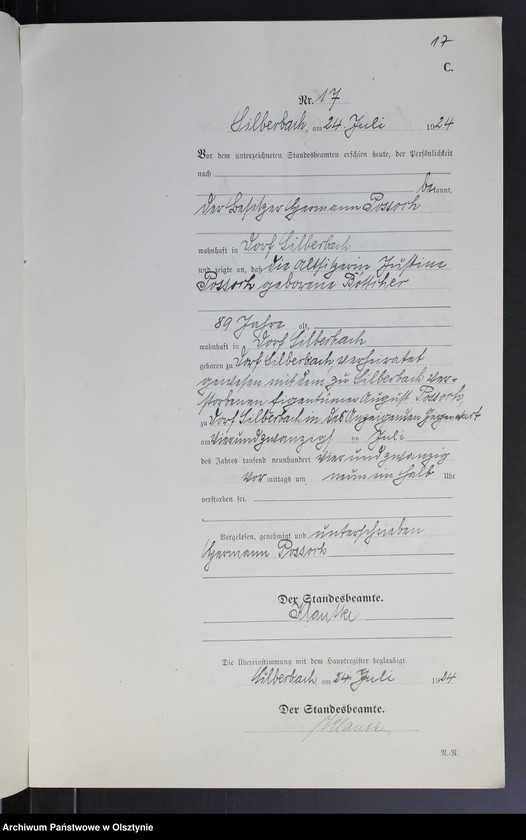 17
C.
Nr. 17
Silberbach, am 24. Juli 1924
Vor dem unterzeichneten Standesbeamten erschien heute, der Persönlichkeit
nach
bekannt,
der Besitzer Hermann Possoch
wohnhaft in Dorf Silberbach
und zeigte an, daß die Altsitzerin Justine
Possoch geborene Böttcher
89 Jahre alt,
wohnhaft in Dorf Silberbach
geboren zu Dorf Silberbach, verheiratet
gewesen mit dem zu Silberbach ver=
storbenen Eigentümer August Possoch,
zu Dorf Silberbach in des Anzeigenden Gegenwart
am vierundzwanzigsten Juli
des Jahres tausend neunhundert vierundzwanzig
vor mittags um neun ein halb Uhr
verstorben sei.
Vorgelesen, genehmigt und unterschrieben
Hermann Possoch
Der Standesbeamte.
Die Übereinstimmung mit dem Hauptregister beglaubigt
Silberbach, am 24. Juli 1924
Der Standesbeamte.
R.-R.
Archiwum Państwowe w Olsztynie